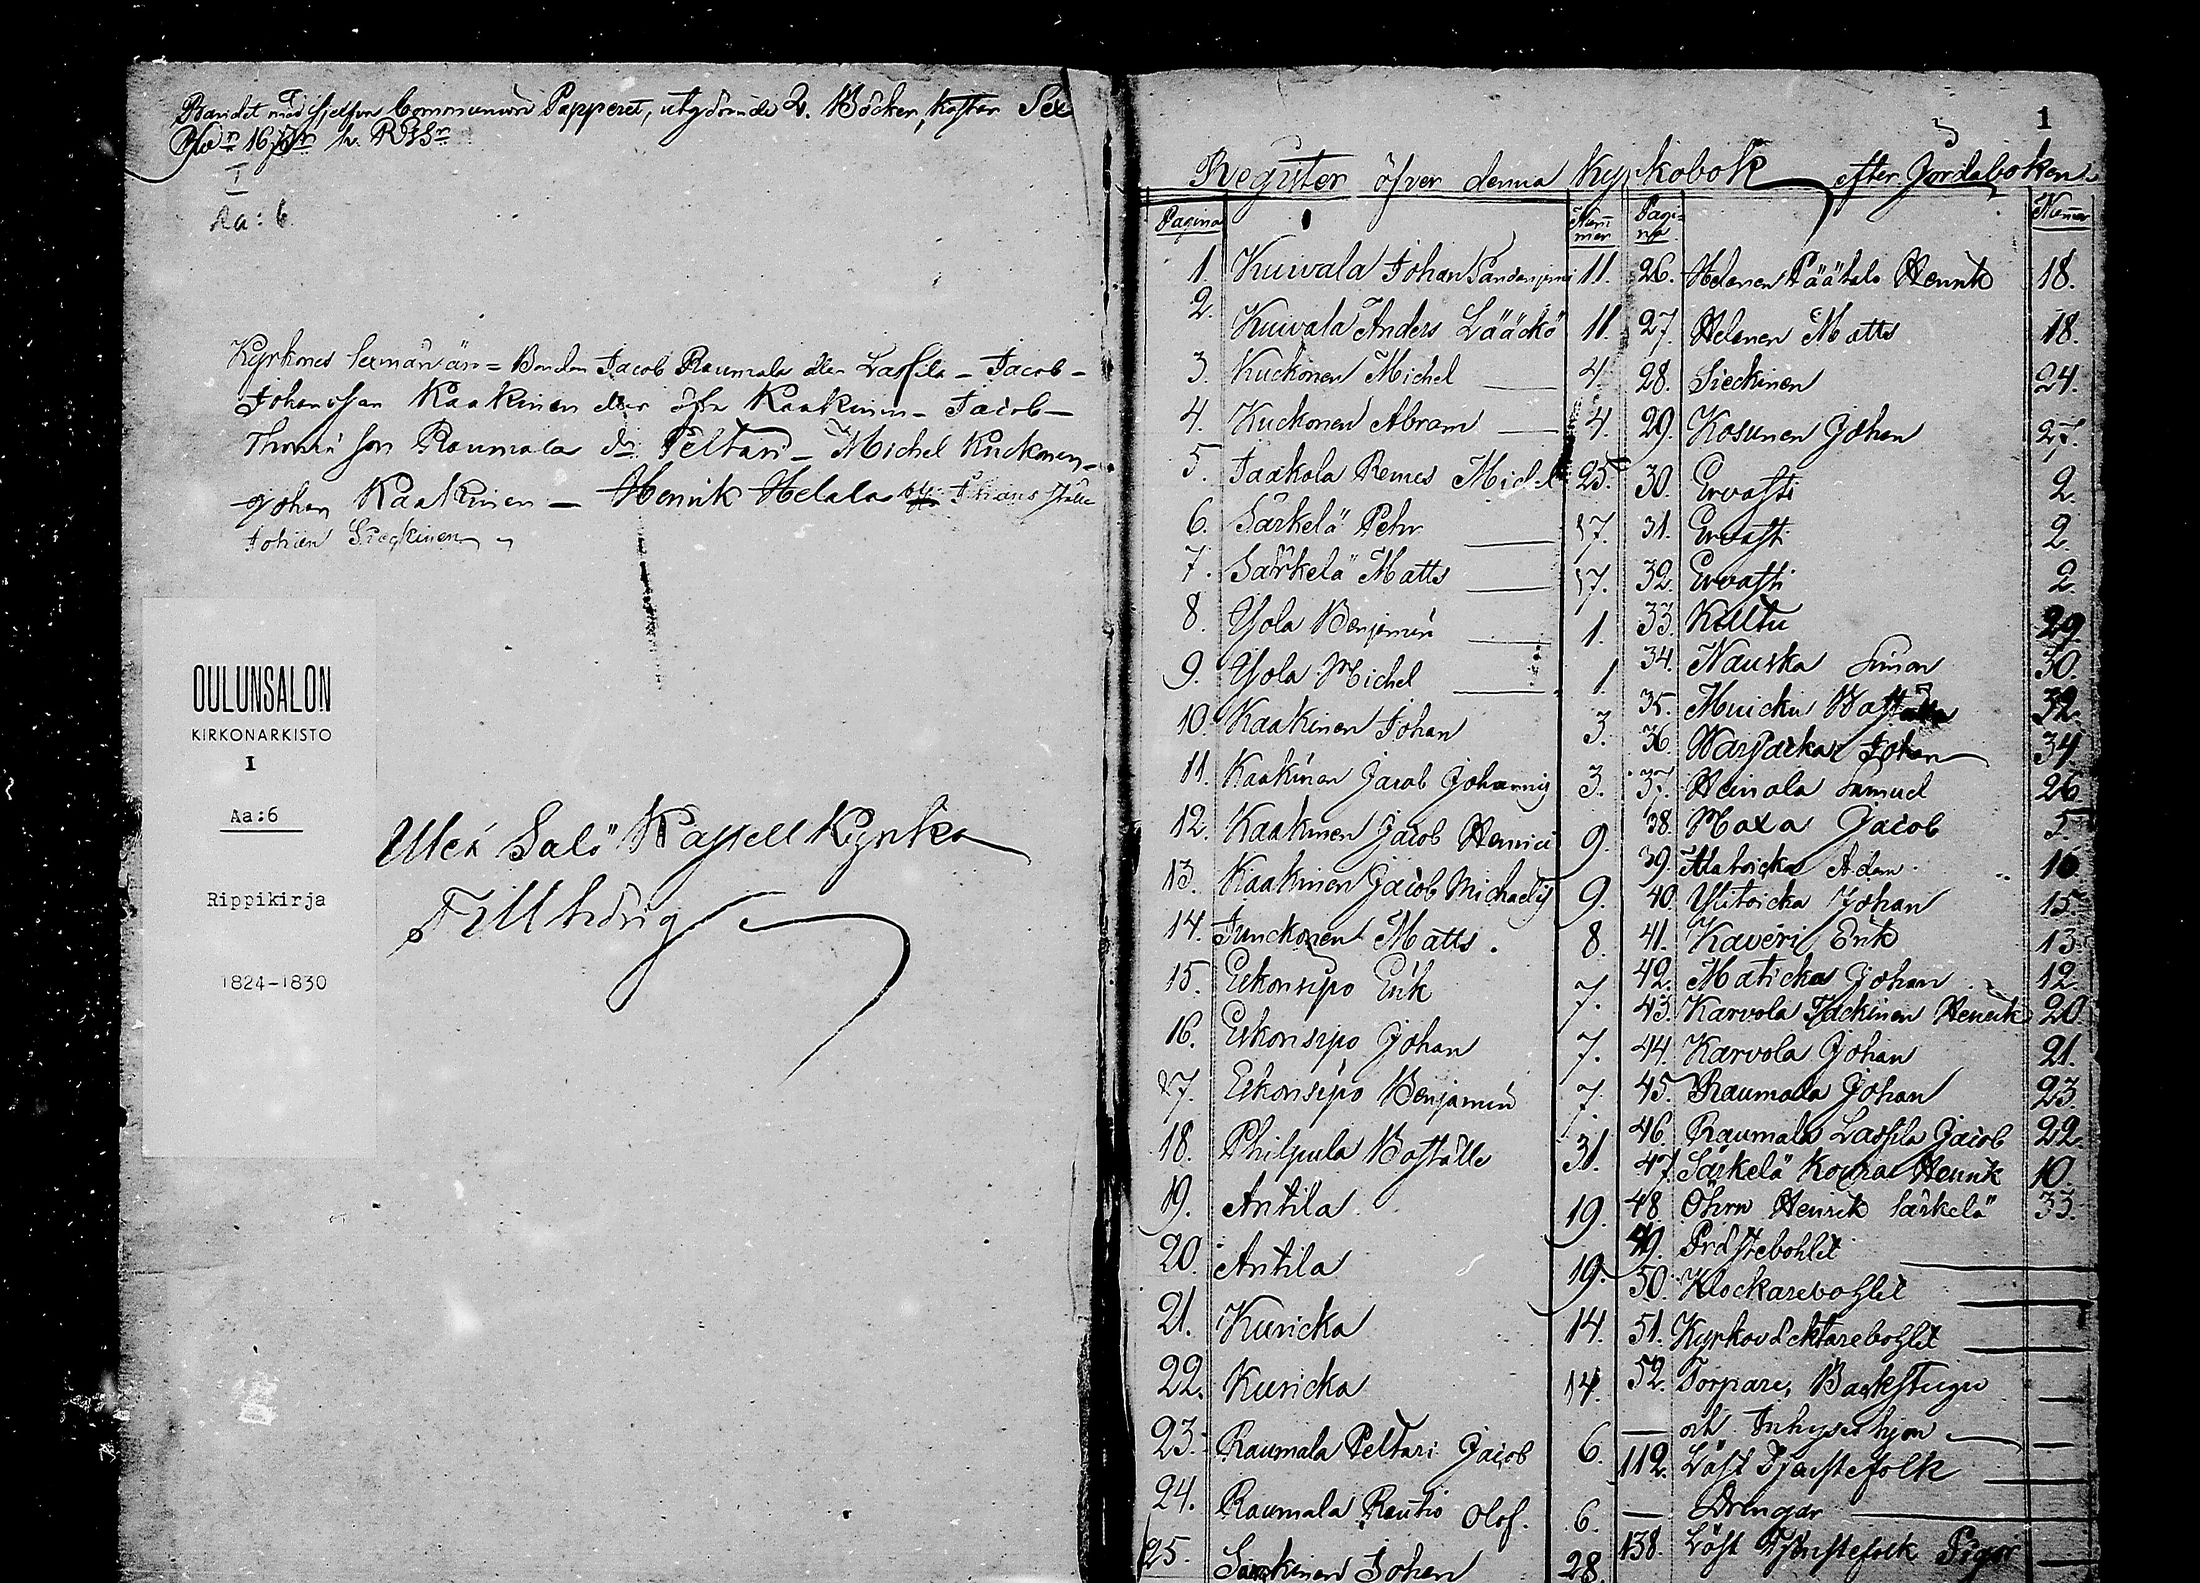 Bandet med sjelfva Communion Papperet, utgörande 2. Böcker, kostar Sex
16 R.G.S.
I
Aa: 6
Kyrkones Sexmän än = Bonden Jacob Raumala eller Lassila - Jacob -
Johansson Kaakinen eller Kaakinen - Jacob -
Thomæ son Raumala d:o Peltari - Michel Kuckonen -
Johan Kaakinen - Henrik Helala Johans ställe
Johan Sieckinen
OULUNSALON
KIRKONARKISTO
I
Aa:6
Rippikirja
1824-1830
Uleå Salo Kapell Kyrka
Tillhörig
1
Register öfver denna Kyrkobok efter Jordaboken
Pagina Nummer
1. Kuivala Johan 11.
2. Kuivala Anders Lääckö 11.
3. Kuckonen Michel 4.
4. Kuckonen Abram 4.
5. Jaakola Remes Michel 25.
6. Särkelä Pehr 17.
7. Särkelä Matts 17.
8. Yola Benjamin 1.
9. Yola Michel 1.
10. Kaakinen Johan 3.
11. Kaakinen Jacob Johannis 3.
12. Kaakinen Jacob Henrici 9.
13. Kaakinen Jacob Michaelis 9.
14. Junckonen Matts. 8.
15. Eskonsipo Erik 7.
16. Eskonsipo Johan 7.
17. Eskonsipo Benjamin 7.
18. Philpula Boställe 31.
19. Antila 19.
20. Antila 19.
21. Kuricka 14.
22. Kuricka 14.
23. Raumala Peltari Jacob 6.
24. Raumala Rautio Olof. 6.
25. Johan 28.
Pagi-
na Nummer
26. Helanen Päätalo Henrik 18.
27. Helanen Matts 18.
28. Sieckinen 24.
29. Kosunen Johan 27.
30. Ervasti 2.
31. Ervasti 2.
32. Ervasti 2.
33. Kylltu 29
34. Nauska Simon 30.
35. Muicku 32.
36. Warjacka Johan 34
37. Heinola Samuel 26
38. Maxa Jacob 5.
39. Alatoicka Adam 16
40. Ylitoicka Johan 15.
41. Kaveri Erik 13.
42. Maticka Johan 12.
43. Karvola Henrik 20.
44. Karvola Johan 21.
45. Raumala Johan 23.
46. Raumala Lassila Jacob 22.
47. Särkelä Koura Henrik 10.
48. Öhrn Henrik Särkelä 33.
49. Prästebohlet
50. Klockarebohlet
51. Kyrkovächtarebohlet
52. Torpare, Backstugu
— och Inhyses hjon
112. Löst Tjenstefolk
— Drengar
138. Löst Tjenstefolk Pigor